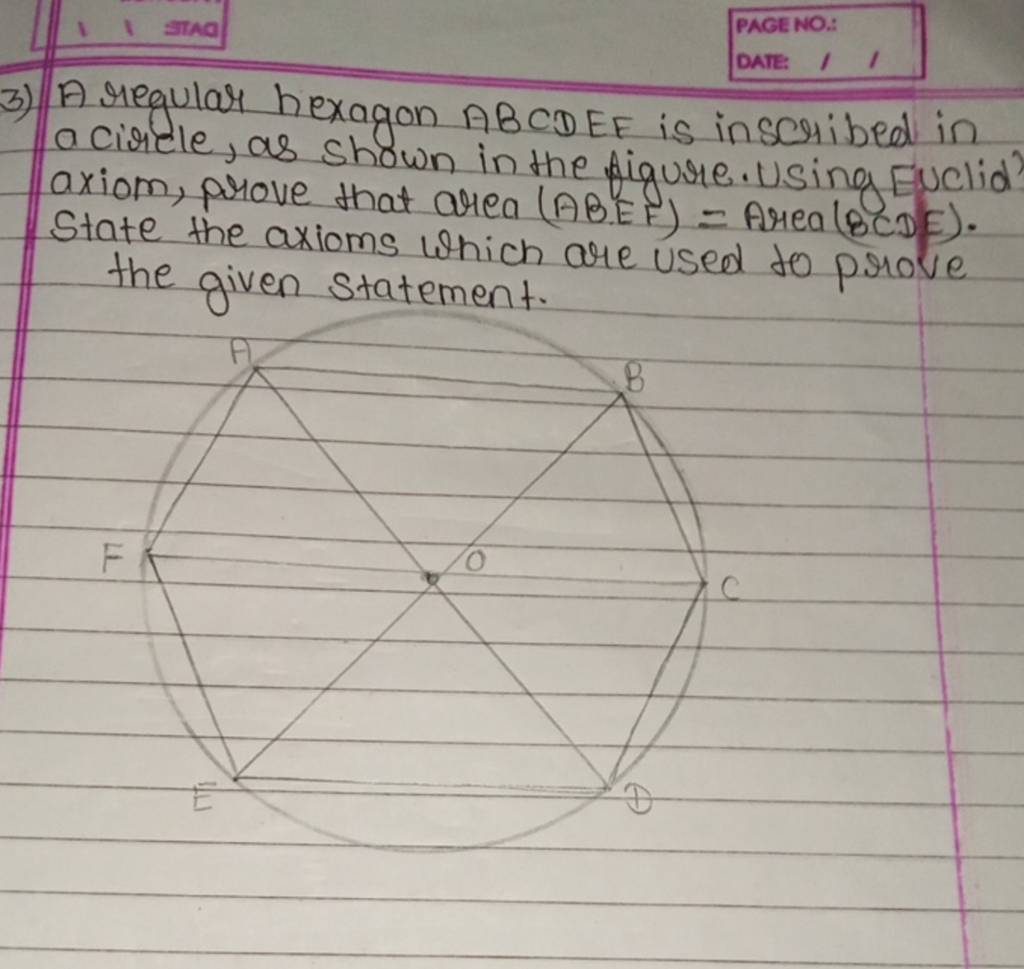 DATE / /
PAGE NO.:
DATE: / /
3) A regular hexagon ABCDEF is inscribed in
a circle, as shown in the figure. Using Euclid's
axiom, prove that area (ABEF) = Area (BCDE).
State the axioms which are used to prove
the given statement.
A
B
F
O
C
E
D